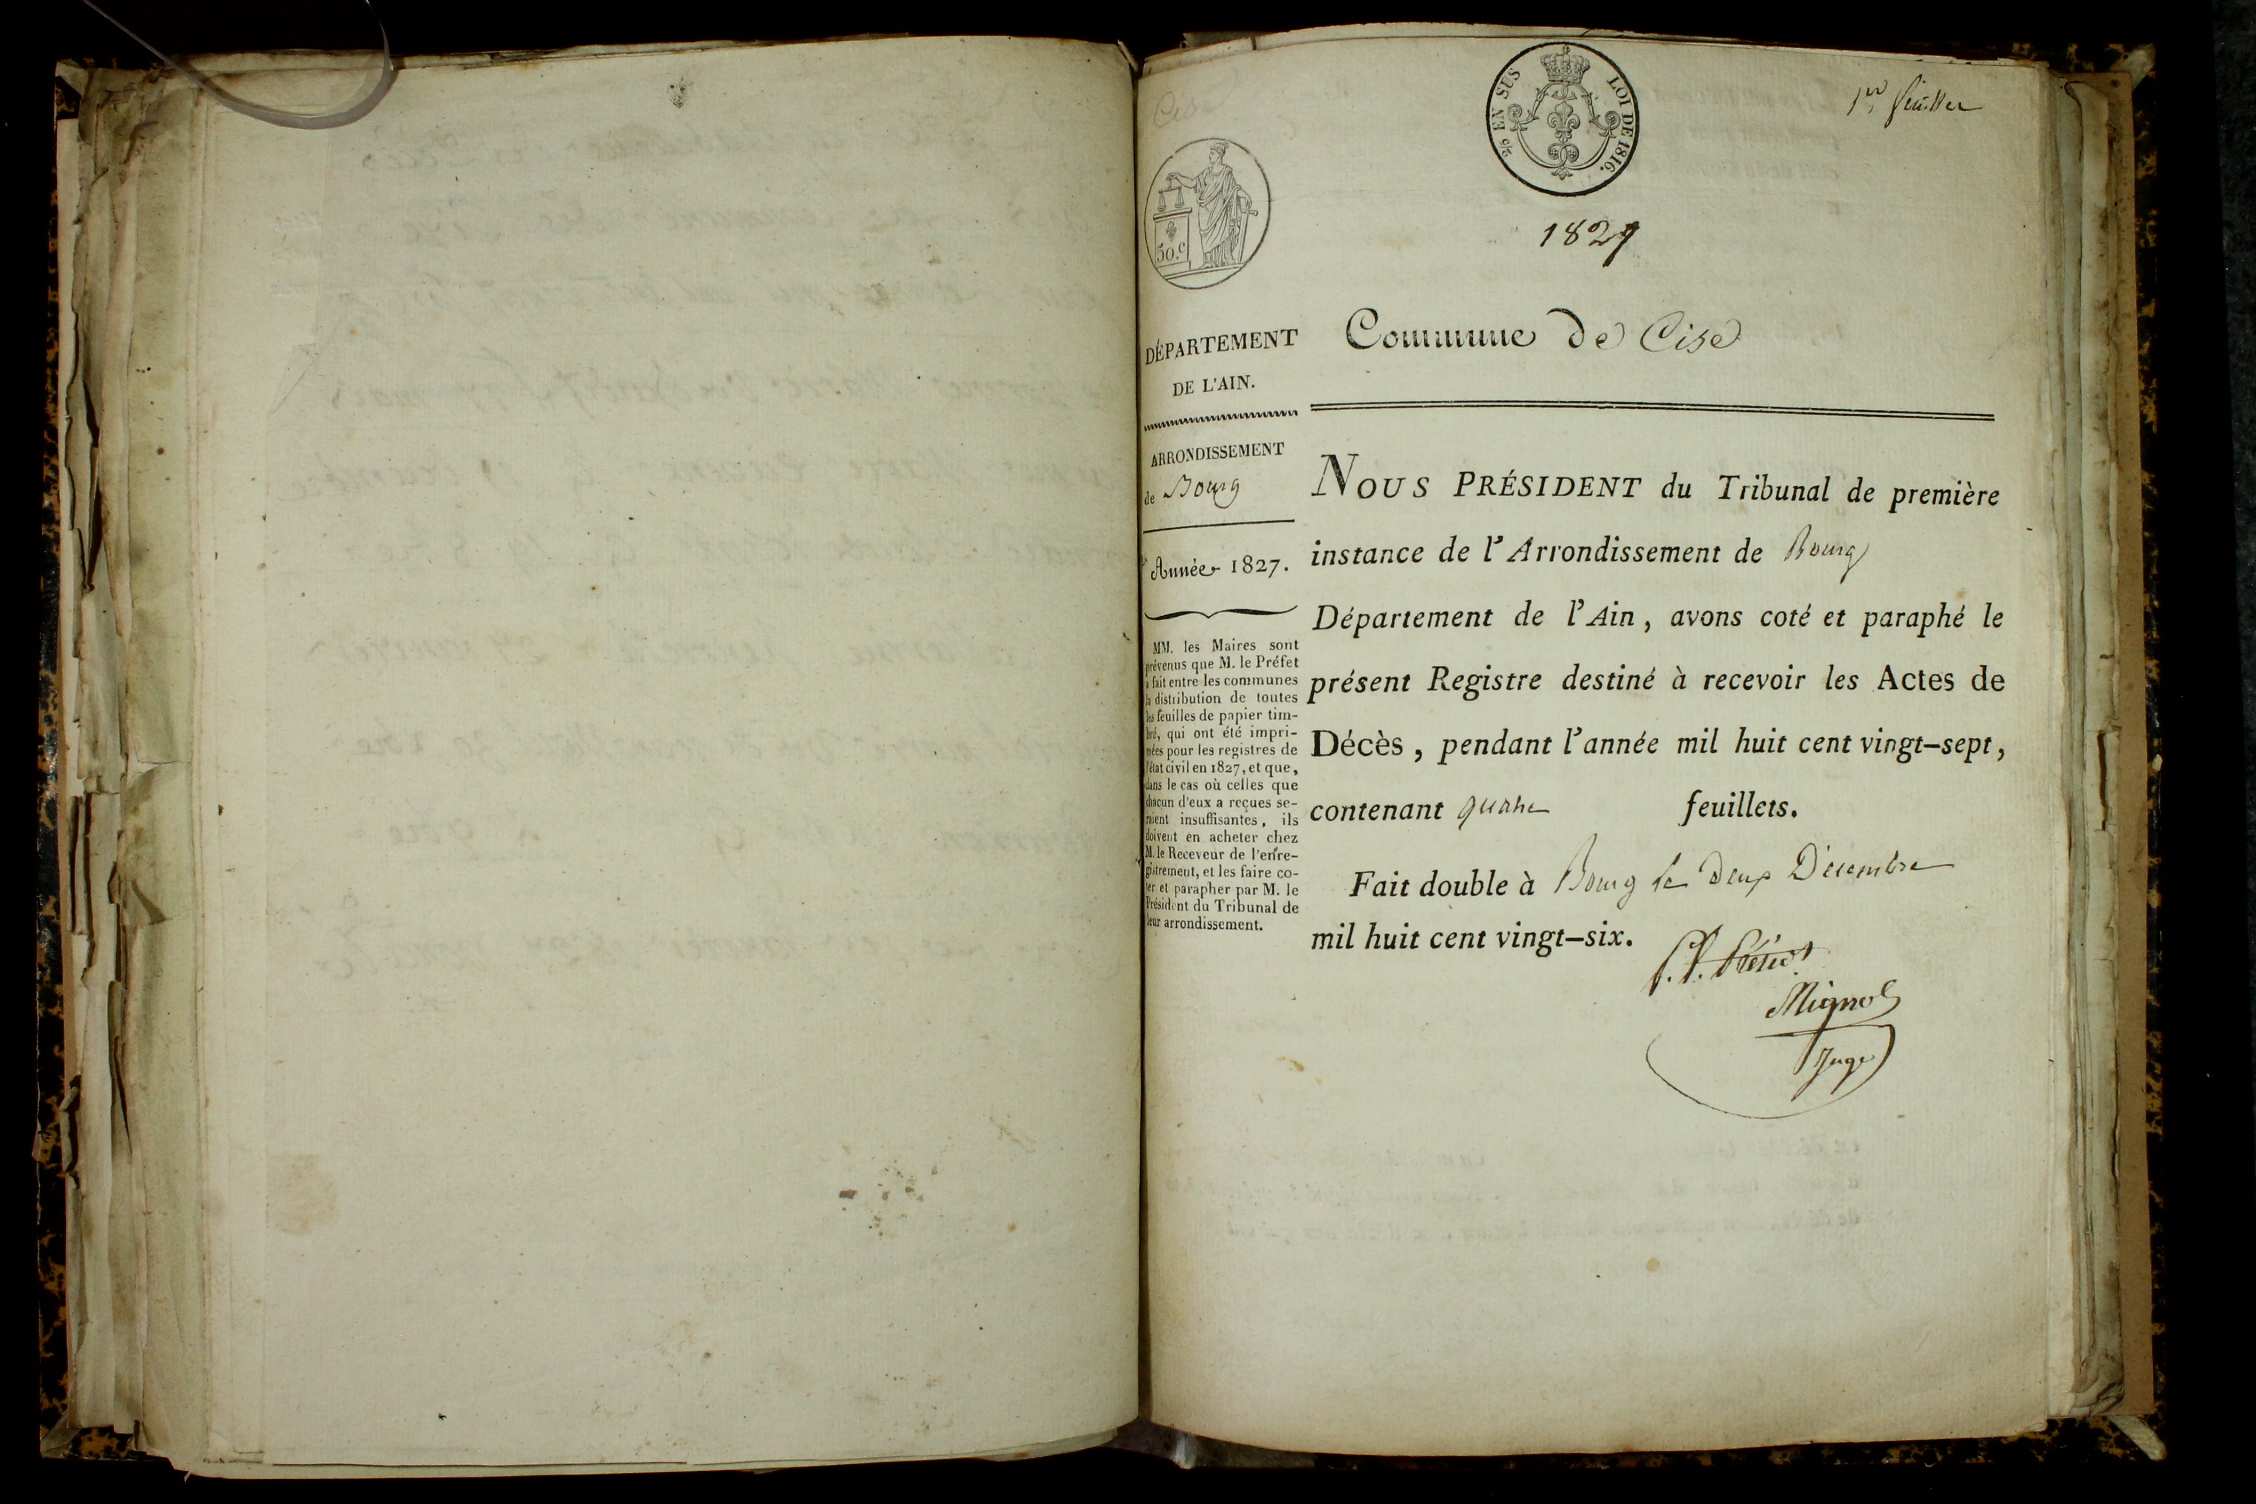 1er feuillet
2/10 EN SUS
LOI DE 1816.
50.c
1827
Commune de Cise
DÉPARTEMENT
DE L'AIN.
ARRONDISSEMENT
de Bourg
Année 1827.
MM. les Maires sont
prévenus que M. le Préfet
a fait entre les communes
la distribution de toutes
les feuilles de papier tim-
bré, qui ont été impri-
mées pour les registres de
l'état civil en 1827, et que,
dans le cas où celles que
chacun d'eux a reçues se-
raient insuffisantes, ils
doivent en acheter chez
M. le Receveur de l'enre-
gistrement, et les faire co-
ter et parapher par M. le
Président du Tribunal de
leur arrondissement.
NOUS PRÉSIDENT du Tribunal de première
instance de l'Arrondissement de Bourg
Département de l'Ain, avons coté et paraphé le
présent Registre destiné à recevoir les Actes de
Décès, pendant l'année mil huit cent vingt-sept,
contenant quatre feuillets.
Fait double à Bourg le deux Décembre
mil huit cent vingt-six.
Mignot
Juge